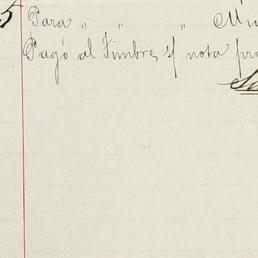 5 Para " " "
Pagó al Timbre s/ nota